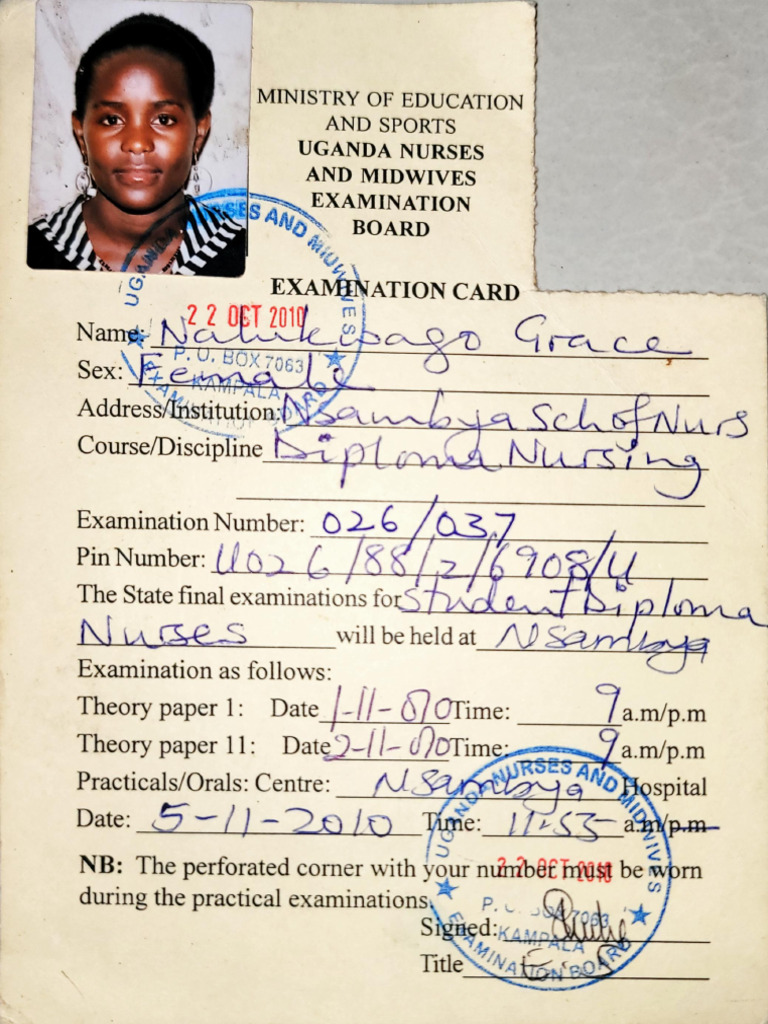 MINISTRY OF EDUCATION
AND SPORTS
UGANDA NURSES
AND MIDWIVES
EXAMINATION
BOARD
EXAMINATION CARD
UGANDA NURSES AND MIDWIVES
22 OCT 2010
P. O. BOX 7063
KAMPALA
EXAMINATION BOARD
Name: Nalukwago Grace
Sex: Female
Address/Institution: Nsambya Sch of Nurs
Course/Discipline Diploma Nursing
Examination Number: 026/037
Pin Number: U026/88/2/6908/U
The State final examinations for Student Diploma
Nurses will be held at Nsambya
Examination as follows:
Theory paper 1: Date 1-11-010 Time: 9 a.m/p.m
Theory paper 11: Date 2-11-010 Time: 9 a.m/p.m
Practicals/Orals: Centre: Nsambya Hospital
Date: 5-11-2010 Time: 11:55 a.m/p.m
NB: The perforated corner with your number must be worn
during the practical examinations.
Signed:
Title
UGANDA NURSES AND MIDWIVES
22 OCT 2010
P. O. BOX 7063
KAMPALA
EXAMINATION BOARD